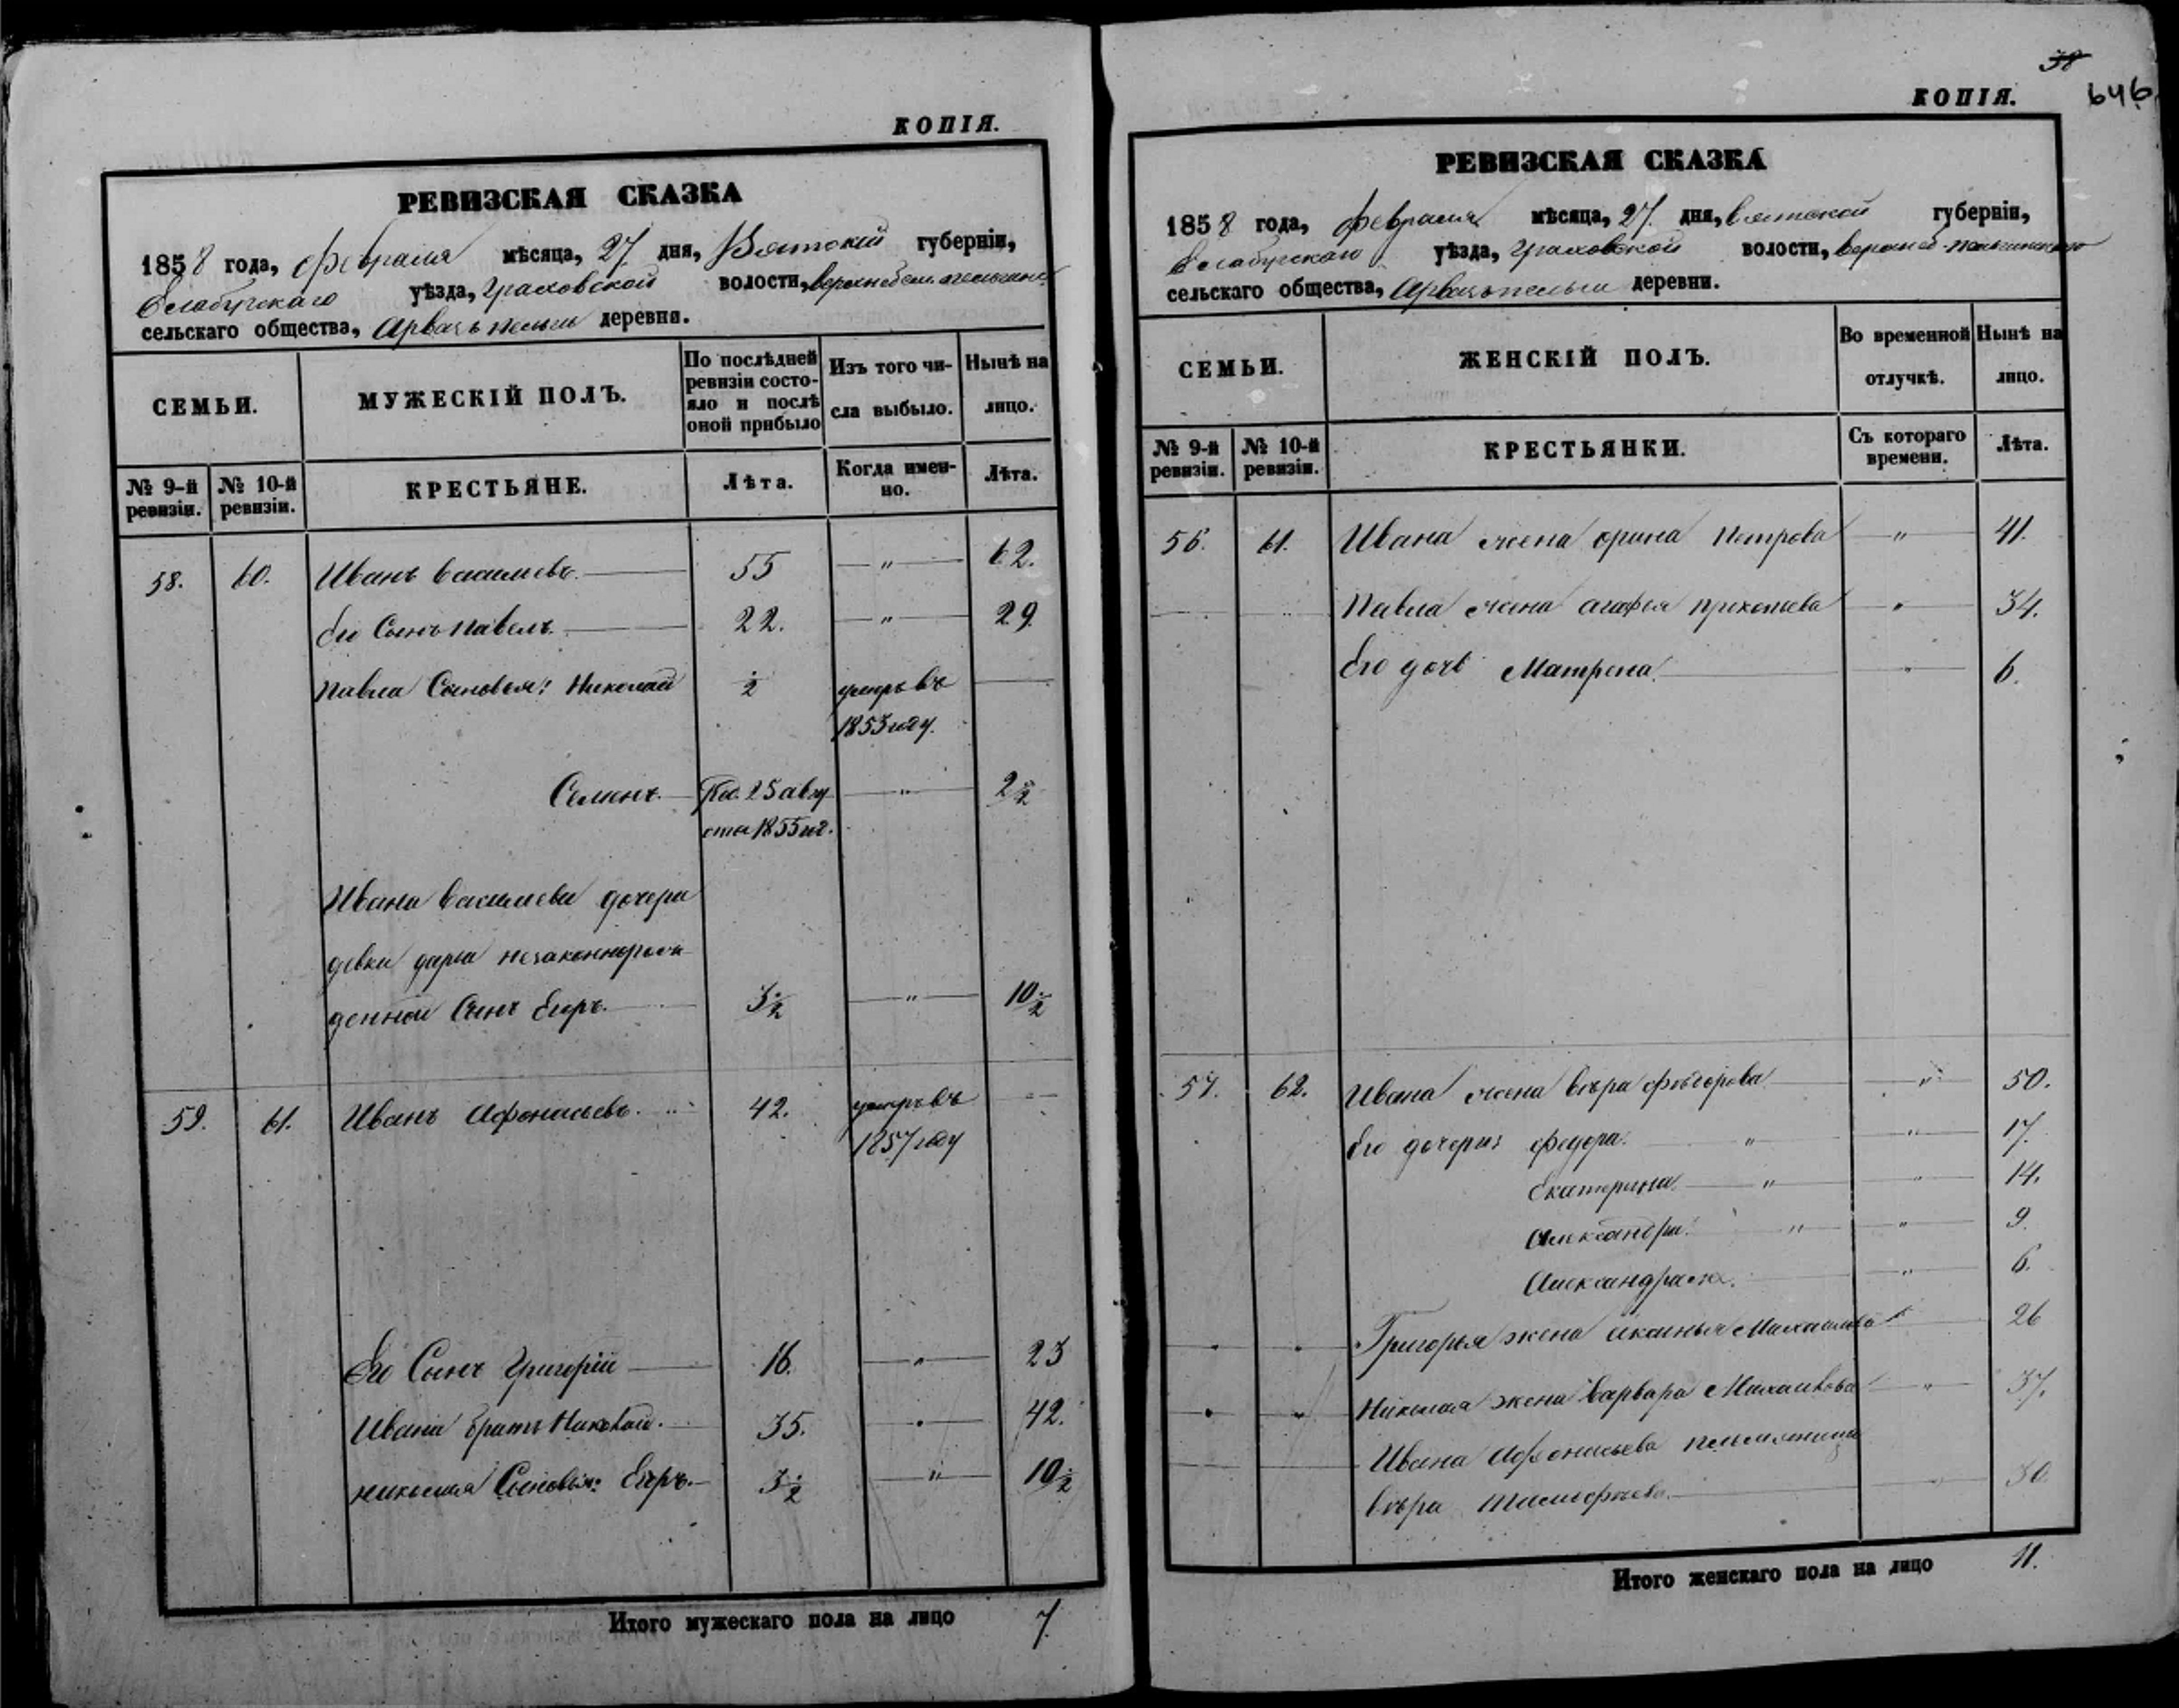 КОПІЯ.
РЕВИЗСКАЯ СКАЗКА
1858 года, Февраля мѣсяца, 27 дня, Вятской губерніи,
Елабугскаго уѣзда, Граховской волости,
сельскаго общества, деревни.
СЕМЬИ. МУЖЕСКІЙ ПОЛЪ. По послѣдней ревизіи состояло и послѣ оной прибыло Изъ того числа выбыло. Нынѣ на лицо.
№ 9-й ревизіи. № 10-й ревизіи. КРЕСТЬЯНЕ. Лѣта. Когда именно. Лѣта.
58. 60. Иванъ Васильевъ. 55 " 62.
Его Сынъ Павелъ. 22. " 29.
Павла Сыновья: Николай ½ умеръ въ
1853 году.
Семенъ. Род. 25 авгу " 2½
ста 1855 год.
Ивана Васильева дочери
девки Дарьи незаконнорож
денной Сынъ Егоръ. 3½ " 10½
59. 61. Иванъ Афонасьевъ. 42. умеръ въ
1857 году
Его Сынъ Григорій 16. " 23
Ивана братъ Николай. 35. " 42.
Николая Сыновья: Егоръ. 3½ " 10½
Итого мужескаго пола на лицо 7.
38
646.
КОПІЯ.
РЕВИЗСКАЯ СКАЗКА
1858 года, Февраля мѣсяца, 27. дня, Вятской губерніи,
Елабугскаго уѣзда, Граховской волости,
сельскаго общества, деревни.
СЕМЬИ. ЖЕНСКІЙ ПОЛЪ. Во временной отлучкѣ. Нынѣ на лицо.
№ 9-й ревизіи. № 10-й ревизіи. КРЕСТЬЯНКИ. Съ котораго времени. Лѣта.
56. 61. Ивана жена Орина Петрова " 41.
Павла жена Агафья Прокопьева " 34.
Его дочь Матрена. " 6.
57. 62. Ивана жена Вѣра Федорова " 50.
Его дочери: Федора. " " 17.
Екатерина. " " 14.
Александра. " " 9.
" 6.
Григорья жена Аксинья Михайлова " 26
" " Николая жена Варвара " 37.
Ивана Афонасьева племянница
Вѣра " 30.
Итого женскаго пола на лицо 11.